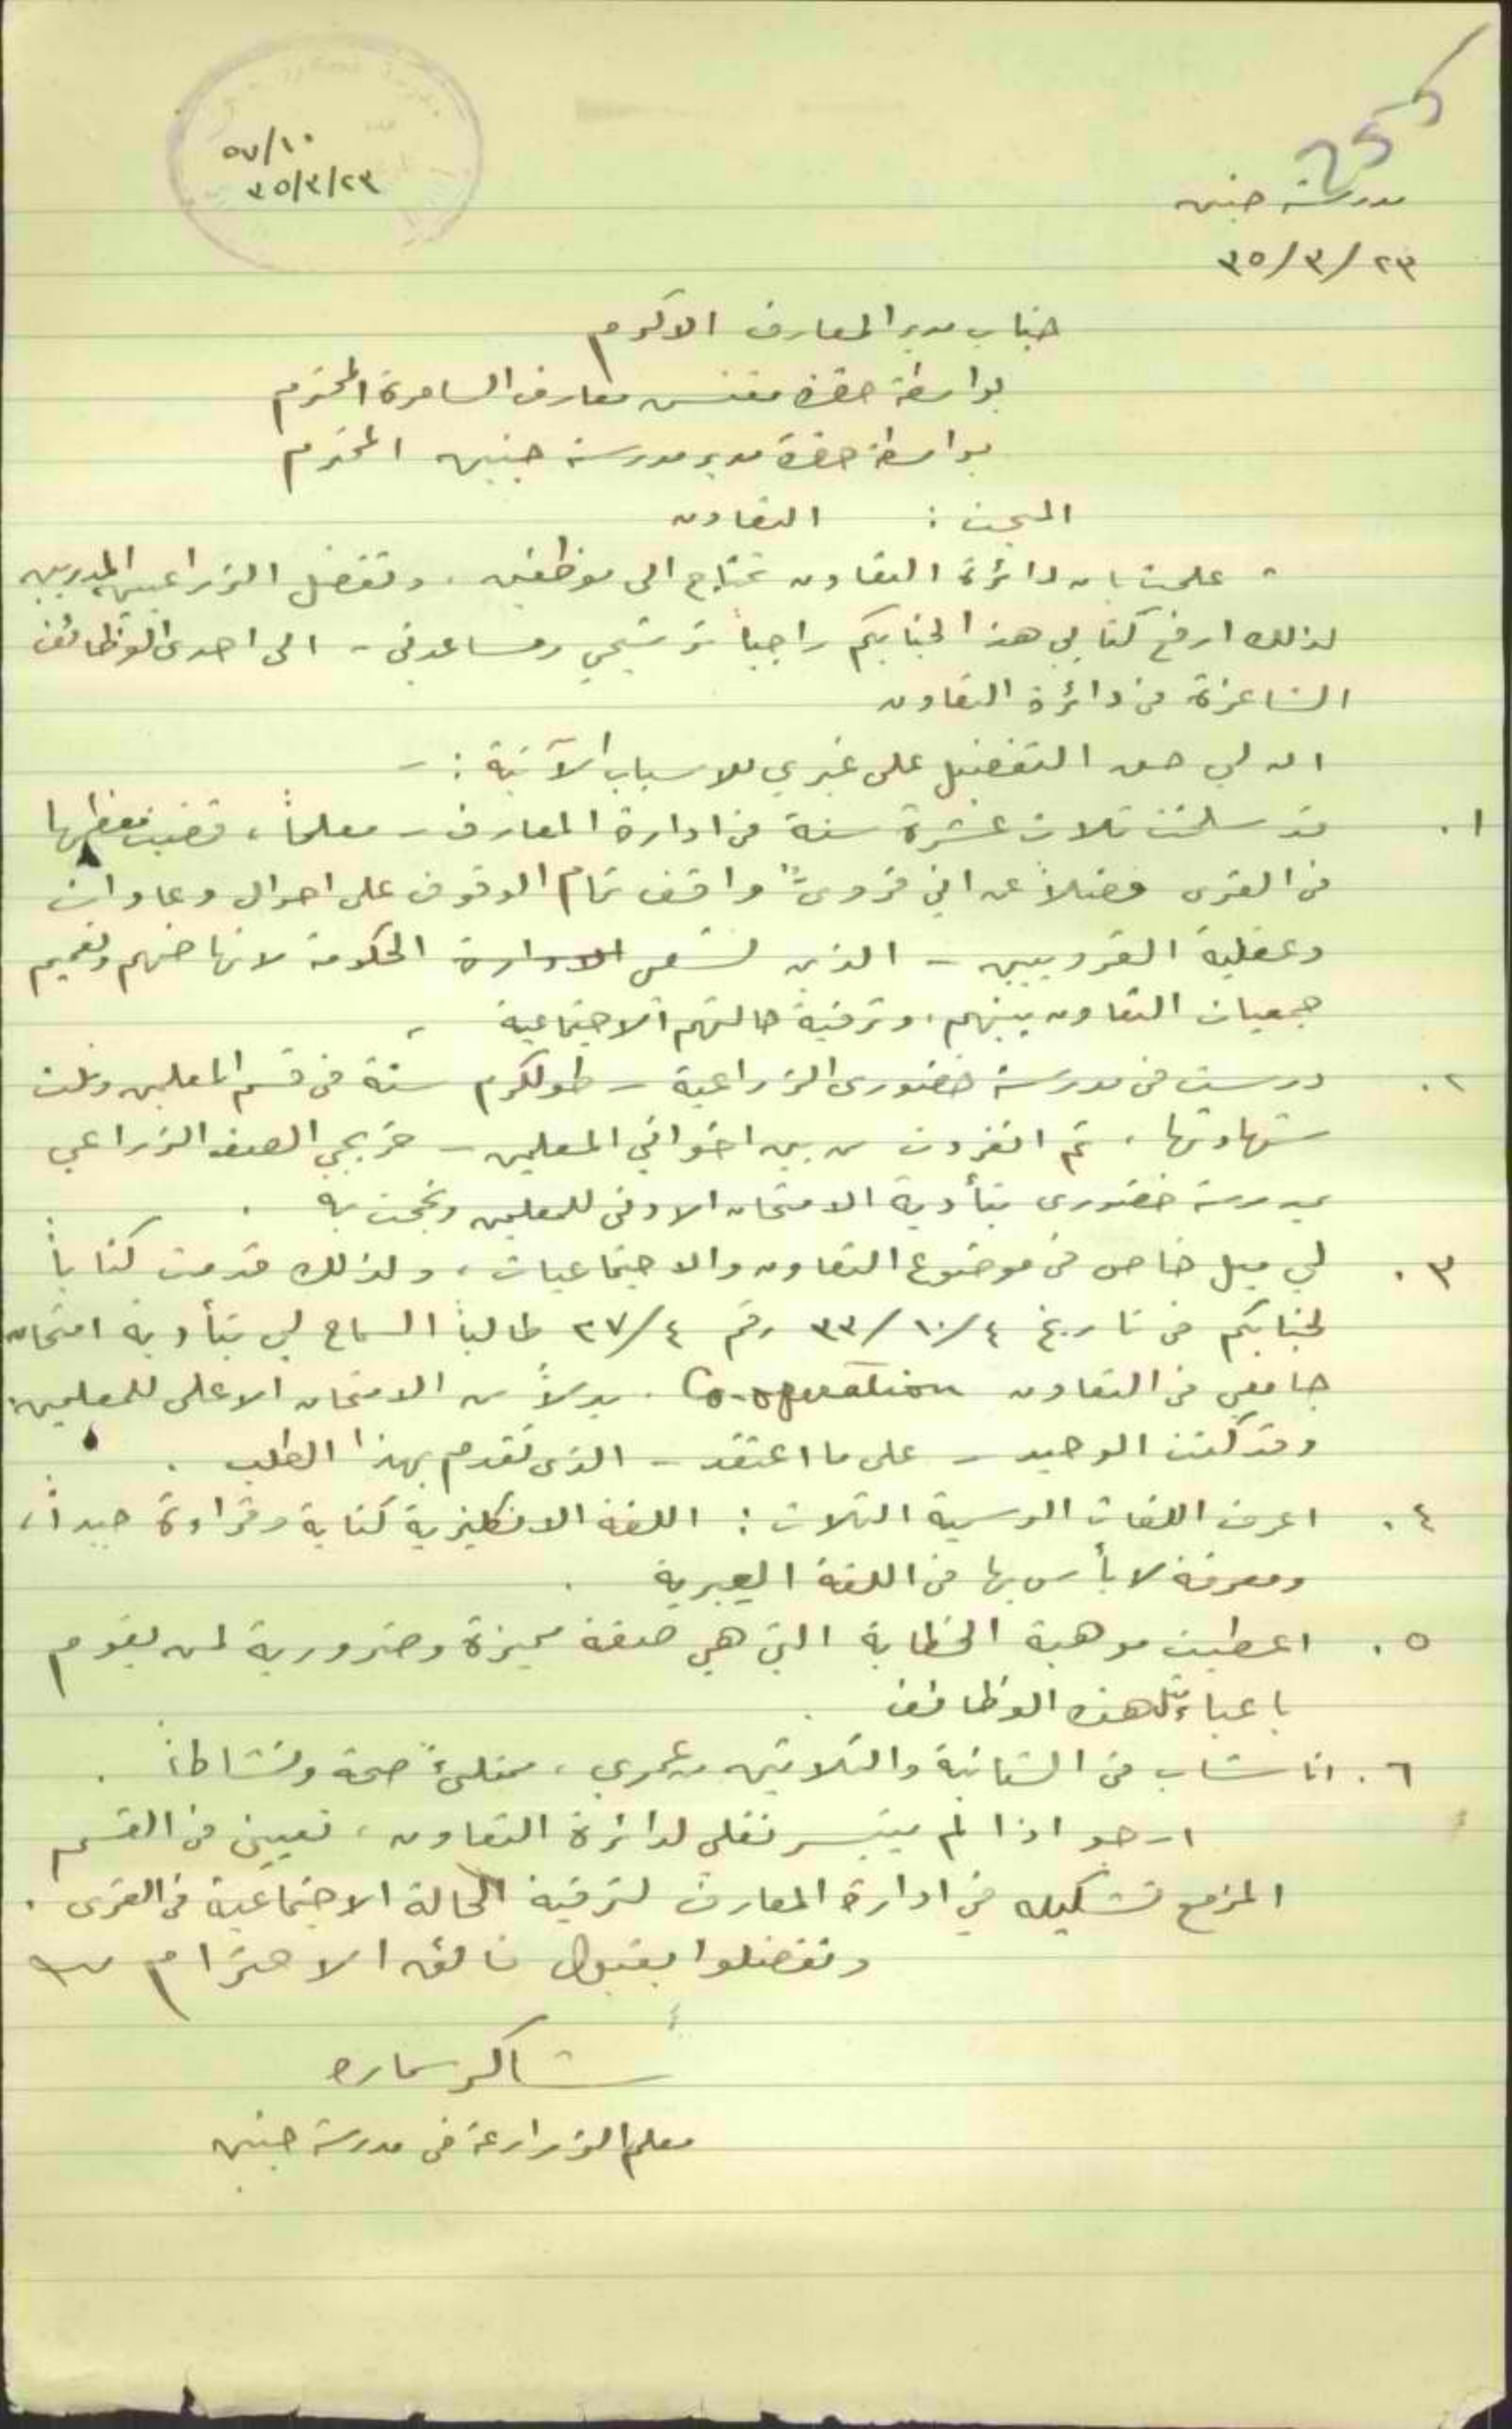 255
٥٧/١٠
٣٥/٣/٢٣
مدرسة جنين
٣٥/٣/٢٣
جناب مدير المعارف الاكرم
بواسطة حضرة مفتش معارف السامرة المحترم
بواسطة حضرة مدير مدرسة جنين المحترم
المبحث : التعاون
علمت بان دائرة التعاون تحتاج الى موظفين . وتفضل الزراعيين المدربين
لذلك ارفع كتابي هذا لجنابكم راجياً ترشيحي ومساعدتي - الى احدى الوظائف
الشاغرة في دائرة التعاون
ان لي حق التفضيل على غيري للاسباب الآتية : -
١. قد سلخت ثلاث عشرة سنة في ادارة المعارف - معلماً ، قضيت معظمها
في القرى فضلاً عن اني قروي واقف تمام الوقوف على احوال وعادات
وعقلية القرويين - الذين تسعى الادارة الحكومة لانهاضهم وتعميم
جمعيات التعاون بينهم ، وترقية حالتهم الاجتماعية .
٢. درست في مدرسة خضوري الزراعية - طولكرم سنة في قسم المعلمين ونلت
شهادتها ، ثم انفردت من بين اخواني المعلمين - خريجي الصف الزراعي
بمدرسة خضوري بتأدية الامتحان الادنى للمعلمين ونجحت به .
٣. لي ميل خاص في موضوع التعاون والاجتماعيات ، ولذلك قدمت كتاباً
لجنابكم في تاريخ ٣٣/١٠/٤ رقم ٢٧/٤ طالباً السماح لي بتأدية امتحان
جامعي في التعاون Co-operation . بدلاً من الامتحان الاعلى للمعلمين
وقد كنت الوحيد - على ما اعتقد - الذي تقدم بهذا الطلب .
٤. اعرف اللغات الرسمية الثلاث : اللغة الانكليزية كتابة وقراءة جيداً ،
ومعرفة لا بأس بها في اللغة العبرية .
٥. اعطيت موهبة الخطابة التي هي صفة مميزة وضرورية لمن يقوم
باعباء مثل هذه الوظائف .
٦. انا شاب في الثانية والثلاثين من عمري ، ممتلئ صحة ونشاطاً .
ارجو اذا لم يتيسر نقلي لدائرة التعاون ، تعييني في القسم
المزمع تشكيله في ادارة المعارف لترقية الحالة الاجتماعية في القرى .
وتفضلوا بقبول فائق الاحترام
شاكر سماره
معلم الزراعة في مدرسة جنين